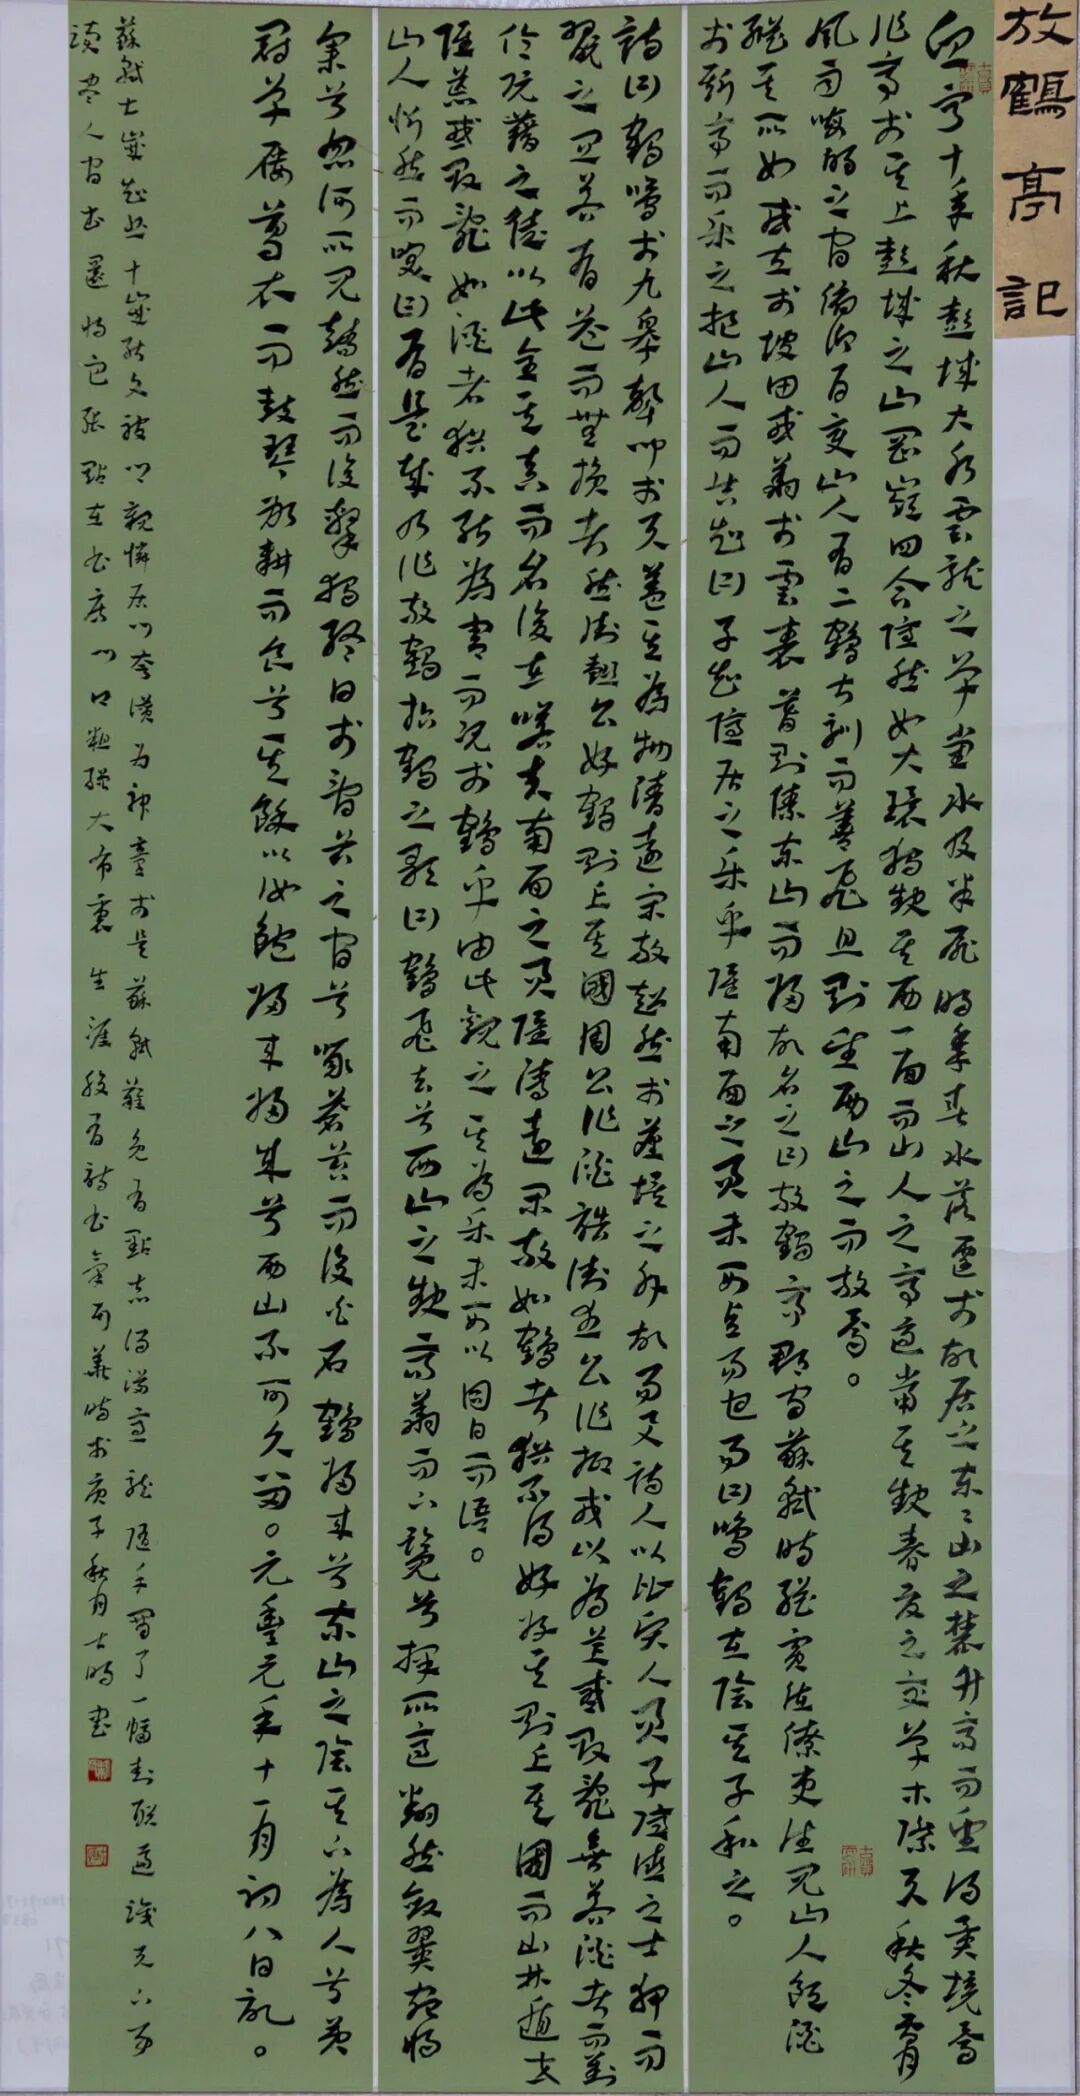 放鶴亭記
熙寧十年秋彭城大水雲龍之草堂水及半扉明年春水落遷於故居之東〻山之麓升高而望得異境焉
作亭於其上彭城之山岡嶺四合隱然如大環獨缺其西一面而山人之亭適當其缺春夏之交草木際天秋冬雪月
風雨晦明之間俯仰百變山人有二鶴甚馴而善飛旦則望西山之而放焉。
縱其所如或立於坡田或翔於雲表暮則傃東山而歸故名之曰放鶴亭郡守蘇軾時從賓佐僚吏往見山人飲酒
於斯亭而樂之挹山人而告之曰子知隱居之樂乎雖南面之君未可與易也易曰鳴鶴在陰其子和之。
詩曰鶴鳴於九皋聲聞於天蓋其為物清遠閑放超然於塵埃之外故易又詩人以比賢人君子隱德之士狎而
翫之宜若有益而無損者然衛懿公好鶴則亡其國周公作酒誥衛武公作抑戒以為荒惑敗亂無若酒者而劉
伶阮籍之徒以此全其真而名後世嗟夫南面之君雖清遠閑放如鶴者猶不得好好之則亡其國而山林遁世
雖荒惑敗亂如酒者猶不能為害而況於鶴乎由此觀之其為樂未可以同日而語。
山人忻然而笑曰有是哉乃作放鶴招鶴之歌曰鶴飛去兮西山之缺高翔而下覽兮擇所適翻然斂翼宛將
集兮忽何所見矯然而復擊獨終日於澗谷之間兮啄蒼苔而履白石鶴歸來兮東山之陰其下有人兮黃
冠草屨葛衣而鼓琴躬耕而食兮其餘以汝飽歸來歸來兮西山不可久留。元豐元年十一月初八日記。
蘇軾七歲知書十歲能文被親憐為神童於是蘇軾難免有點志得滿意就隨手寫了一幅對聯道識天下字
讀盡人間書還將它張貼在書房門口粗繒大布裹生涯腹有詩書氣自華時於庚子秋月古明書